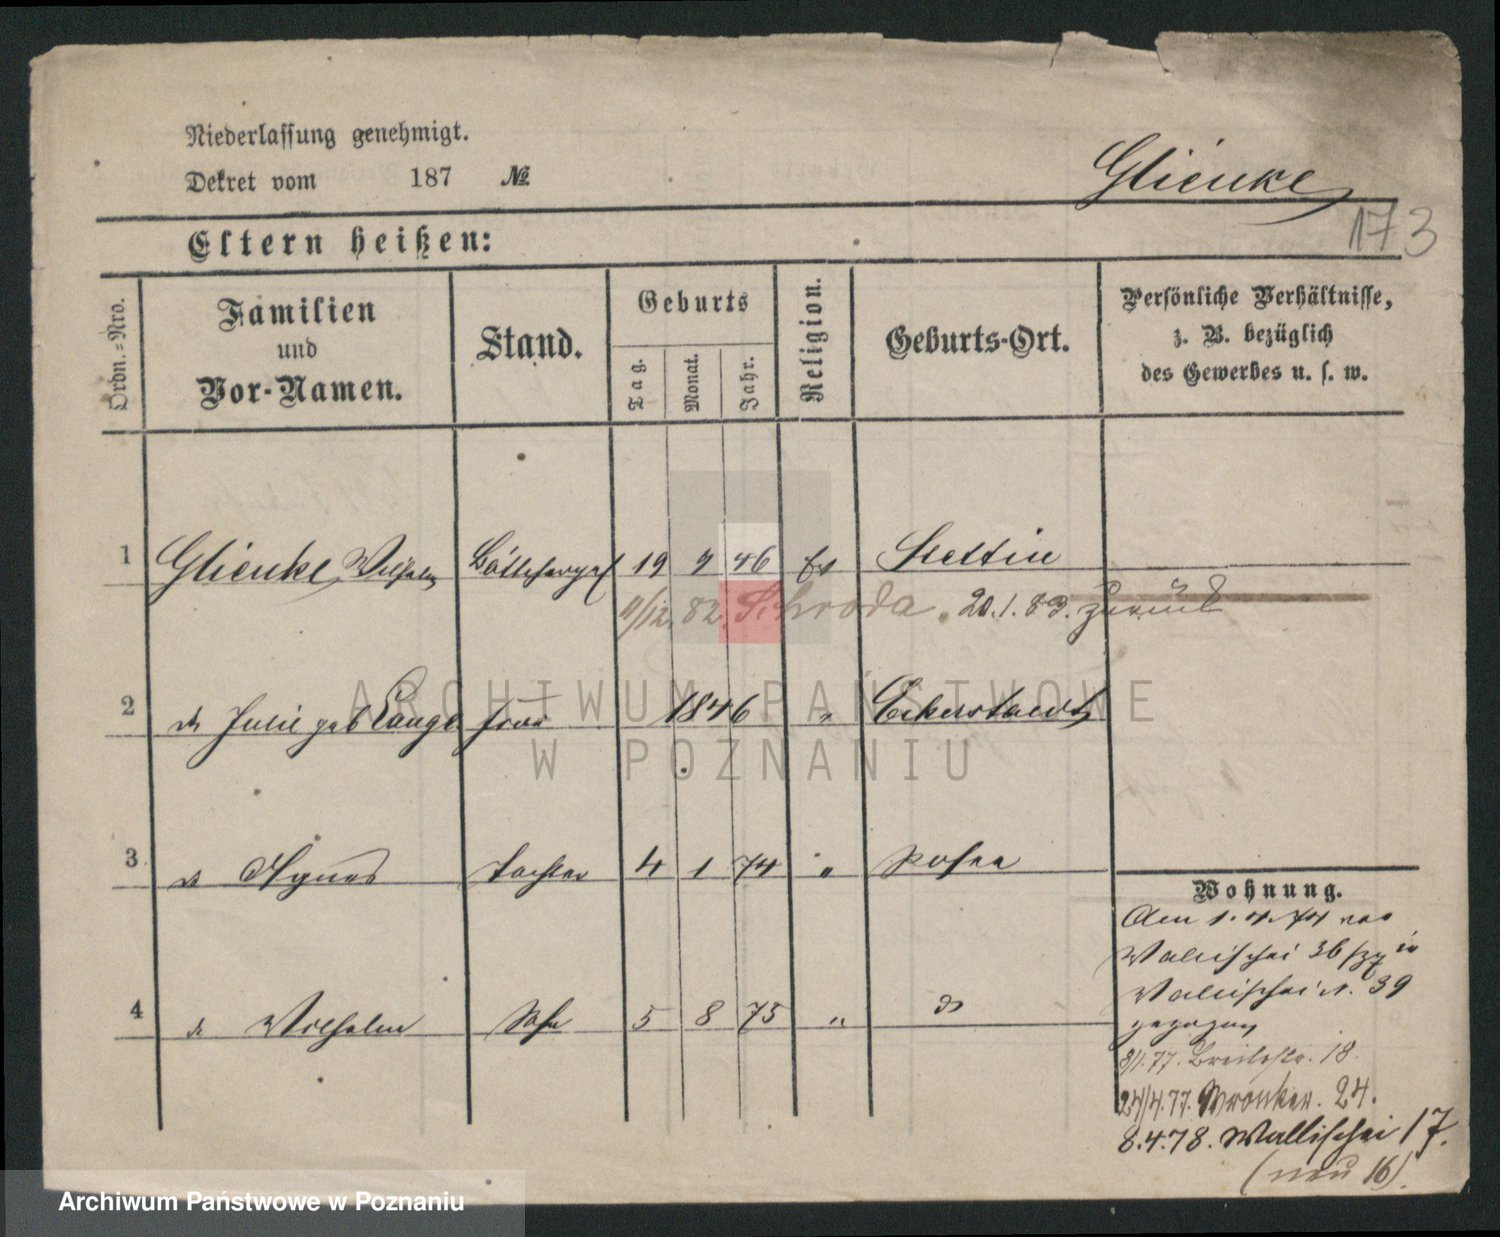 Niederlassung genehmigt.
Dekret vom 187 №
Glienke
173
Eltern heißen:
Ordn.-Nro.
Familien
und
Vor-Namen.
Stand.
Geburts
Tag.
Monat.
Jahr.
Religion.
Geburts-Ort.
Persönliche Verhältnisse,
z. B. bezüglich
des Gewerbes u. s. w.
1 Glienke Wilhelm 19 46 Ev Stettin
11/12. 82. Schroda. 20.1.83. zurück
2 do Julie geb Lange Frau 1846 "
3 do Agnes Tochter 4 1 74 " Posen
4 do Wilhelm Sohn 5 8 75 " do
Wohnung.
Am 1.4.74 von
Wallischei 36 in
Wallischei N. 39
gezogen
8/1.77. Breitestr. 18.
24/4.77. Wronker. 24.
8.4.78. Wallischei 17.
(neu 16).
ARCHIWUM PAŃSTWOWE
W POZNANIU
Archiwum Państwowe w Poznaniu